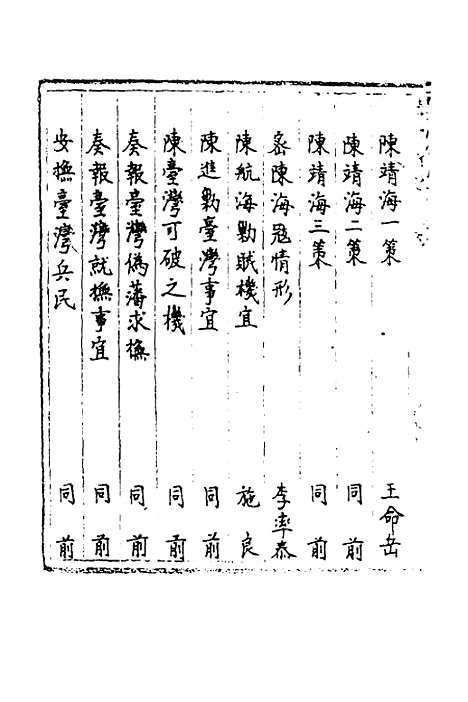 陳靖海一策 王命岳
陳靖海二策 同前
陳靖海三策 同前
密陳海冦情形 李率泰
陳航海勦賊機宜 施良
陳進勦臺灣事宜 同前
陳臺灣可破之機 同前
奏報臺灣偽藩求撫 同前
奏報臺灣就撫事宜 同前
安撫臺灣兵民 同前